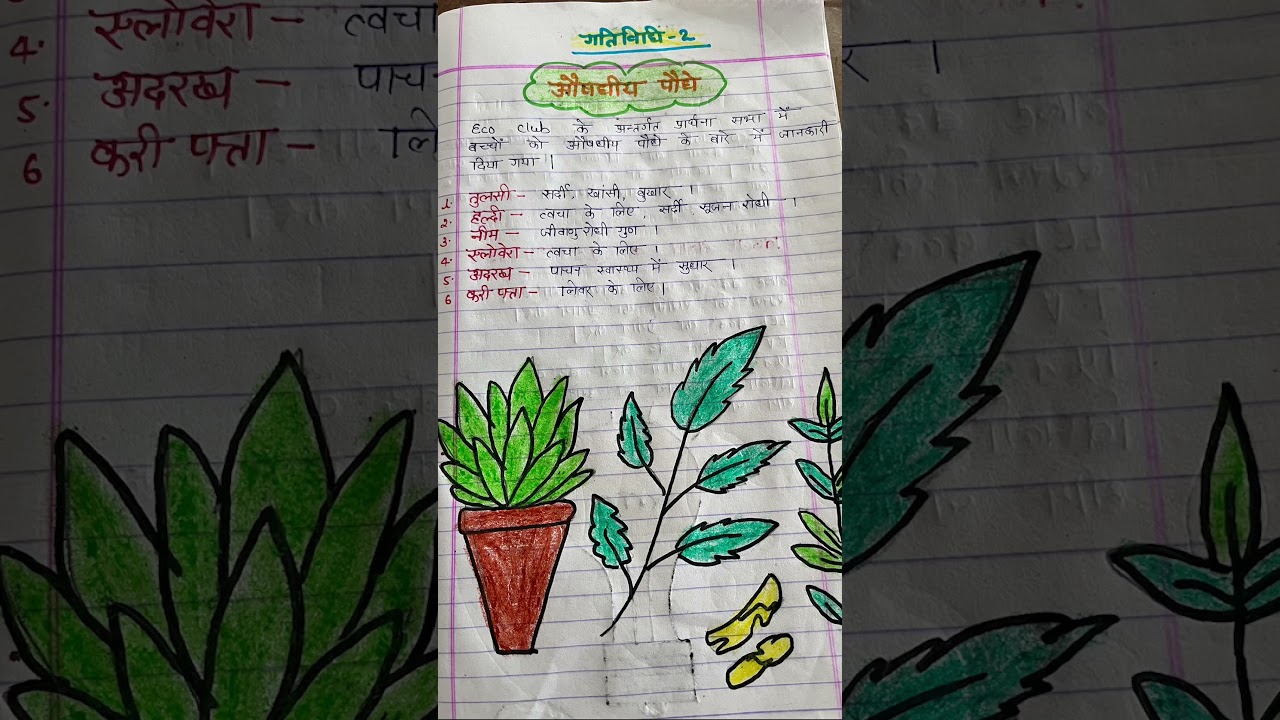 गतिविधि-2
औषधीय पौधे
Eco club के अन्तर्गत प्रार्थना सभा में
बच्चों को औषधीय पौधों के बारे में जानकारी
दिया गया।
1. तुलसी - सर्दी, खांसी, बुखार ।
2. हल्दी - त्वचा के लिए, सर्दी, सूजन रोधी ।
3. नीम - जीवाणु रोधी गुण ।
4. एलोवेरा - त्वचा के लिए ।
5. अदरख - पाचन स्वास्थ्य में सुधार ।
6 करी पत्ता - लिवर के लिए।
4. एलोवेरा - त्वचा
5. अदरख - पाचन
6 करी पत्ता - लि